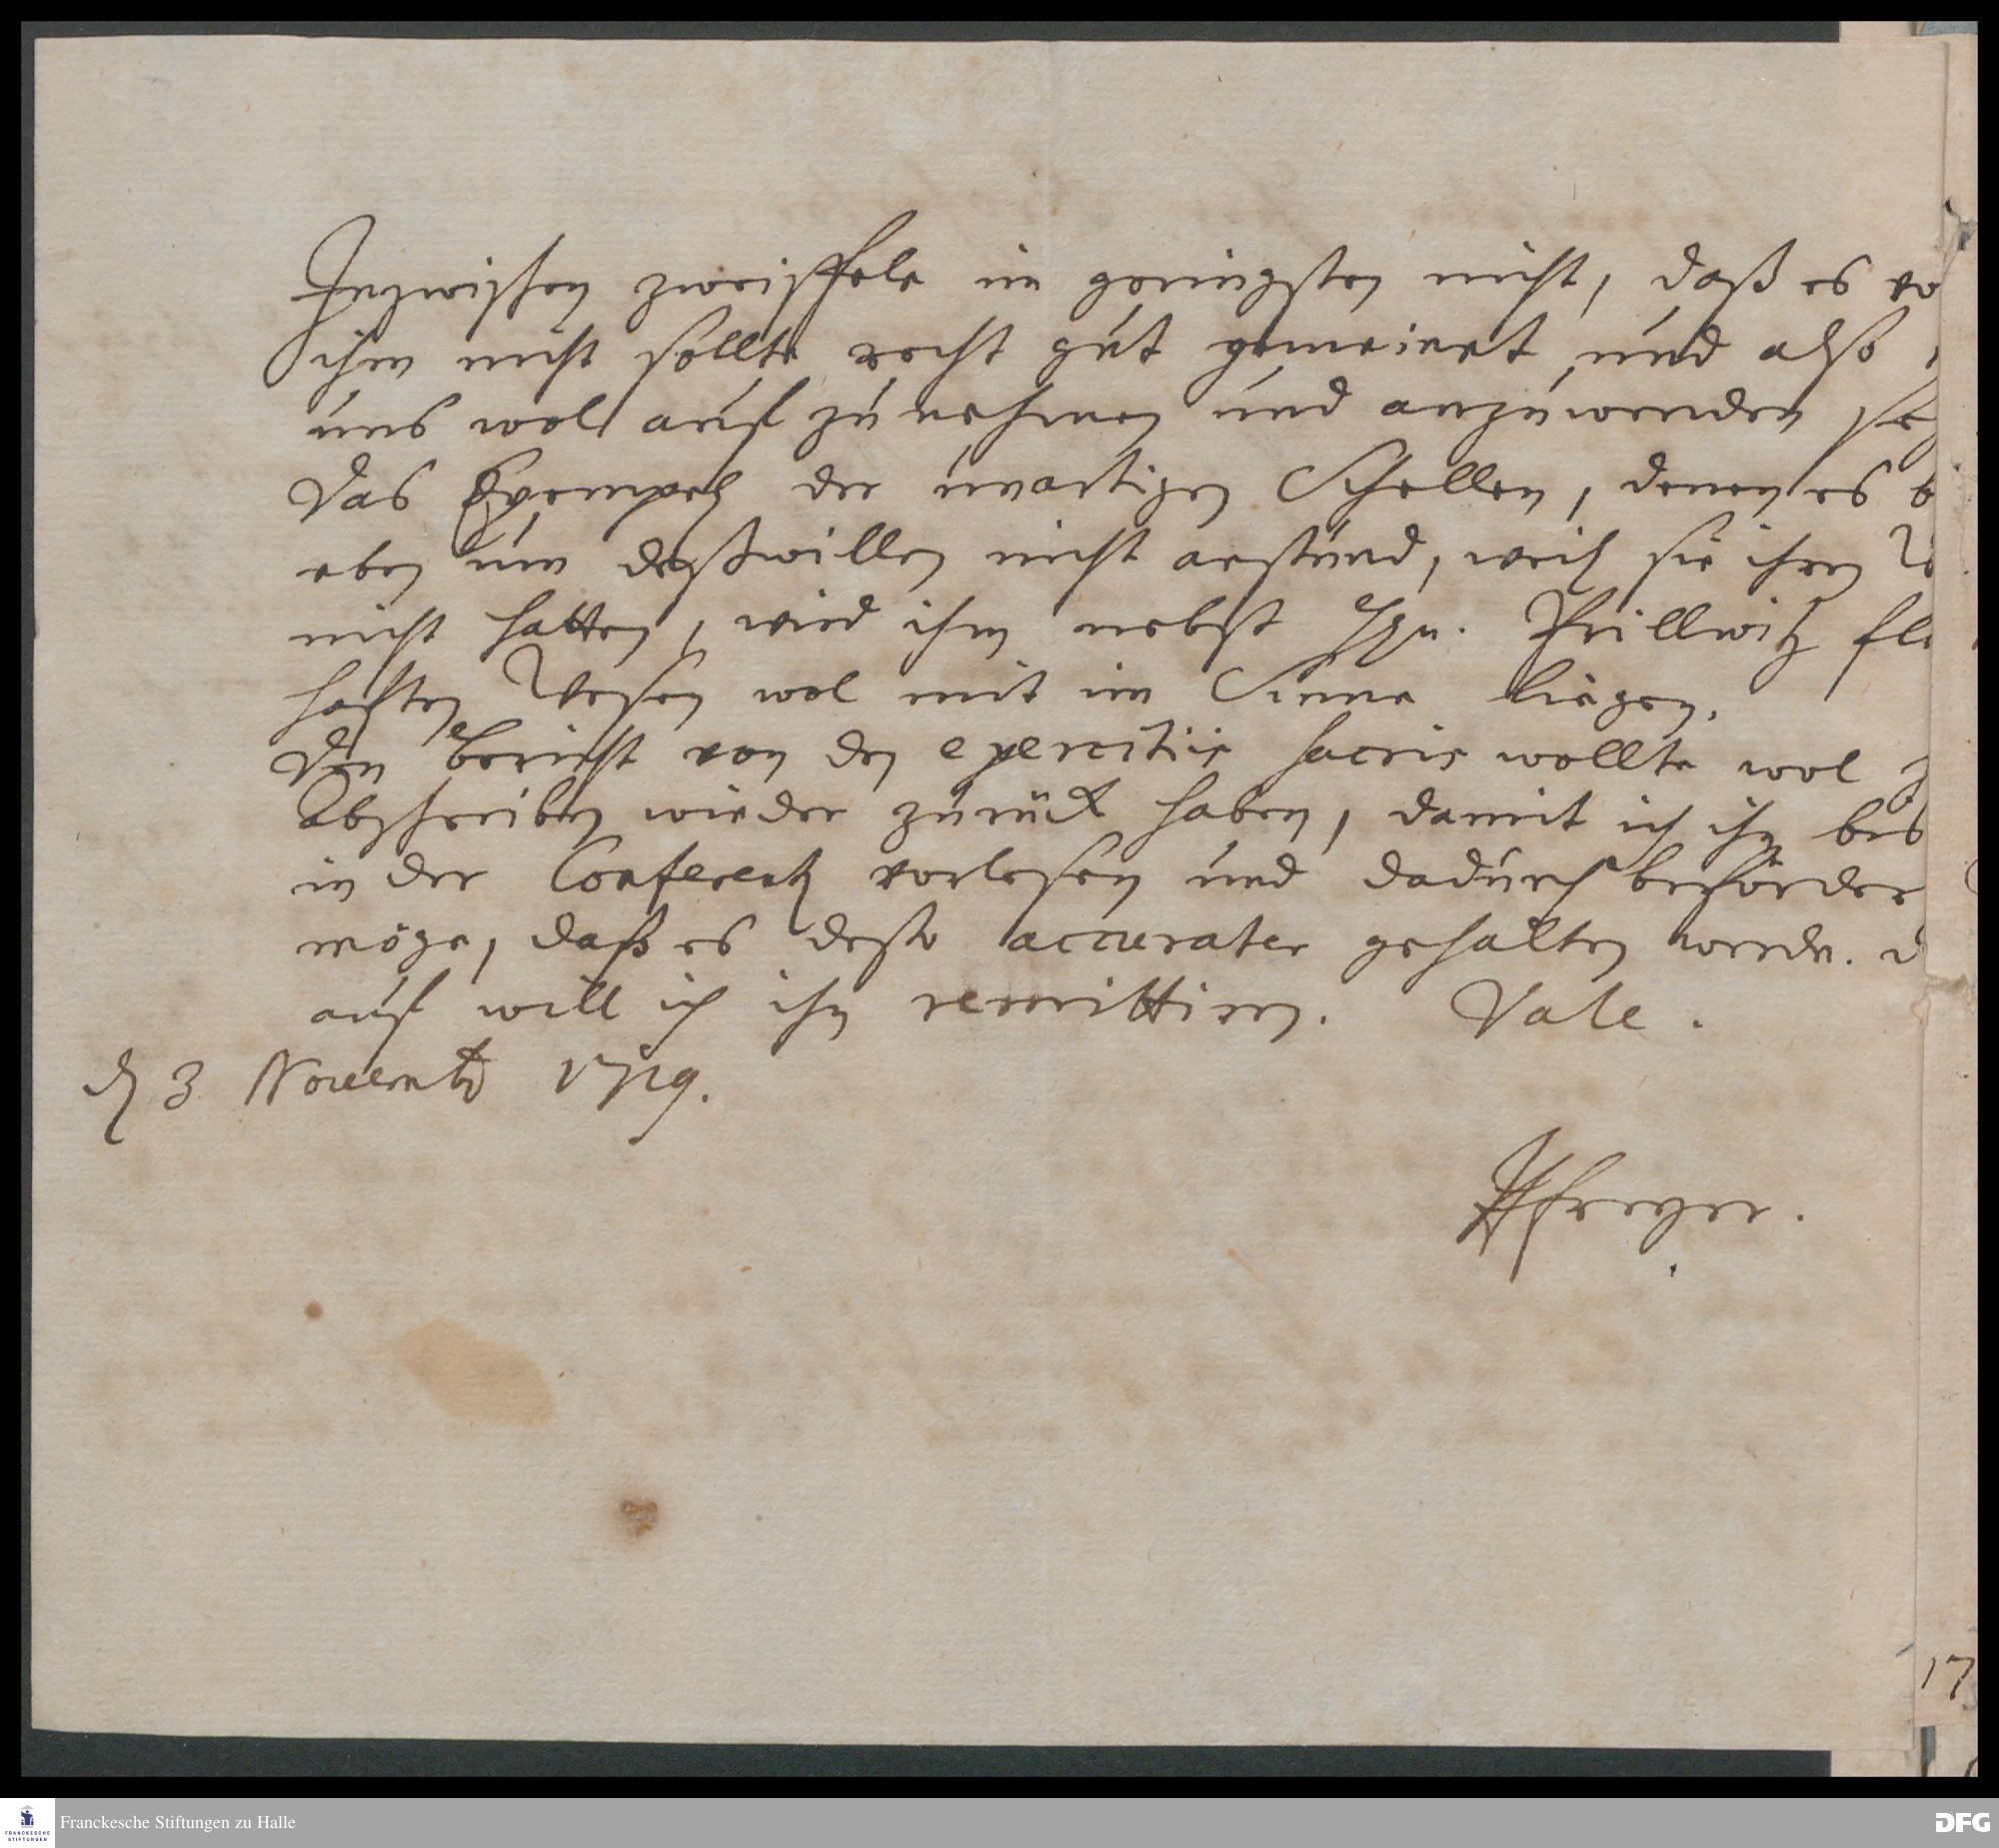 Inzwischen zweiffele im geringsten nicht, daß es vo
ihm nicht sollte recht gut gemeinet und also
uns wol auf zu nehmen und anzuwenden
Das Exempel der unartigen Schellen, denen es b
eben um deßwillen nicht anstund, weil sie ihren
nicht hatten, wird ihm nebst Hrn. Prillwitz fl
haften Wesen wol mit im Sinne liegen.
Den Bericht von den exercitiis sacris wollte wol
Abschreiben wieder zurück haben, damit ich ihn
in der Conferentz vorlesen und dadurch beförder
möge, daß es desto accurater gehalten werde. d
auf will ich ihn remittiren. Vale.
d 3 Novembr 1719.
HFreyer.
17
Franckesche Stiftungen zu Halle
FRANCKESCHE
STIFTUNGEN
DFG